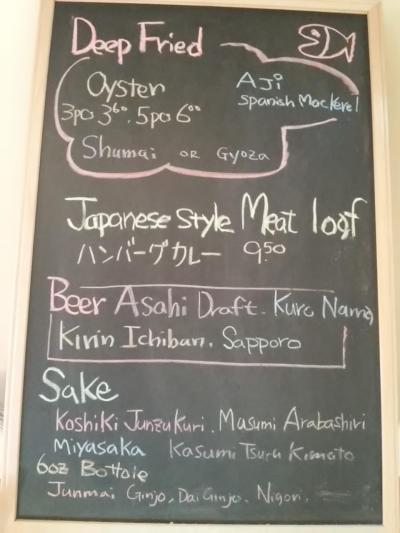 Deep Fried
Oyster
3pcs 3⁶⁰. 5pcs 6⁰⁰
Aji
Spanish Mackerel
Shumai or Gyoza
Japanese Style Meat loaf
ハンバーグカレー 9.50
Beer Asahi Draft. Kuro Nama
Kirin Ichiban. Sapporo
Sake
Koshiki Junzukuri. Masumi Arabashiri
Miyasaka Kasumi Tsuru Kimoto
6oz Bottole
Junmai Ginjo, Dai Ginjo. Nigori.